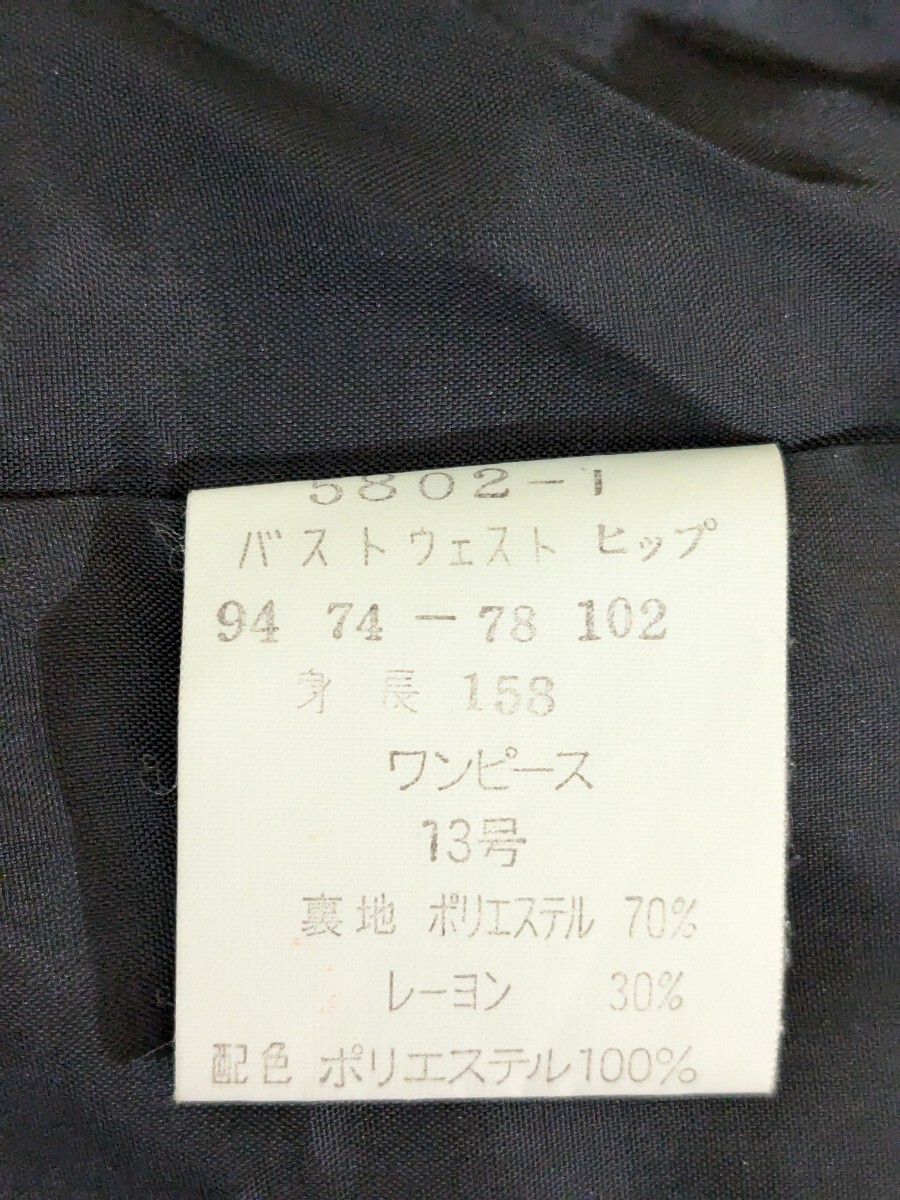 5802-1
バスト ウェスト ヒップ
94 74-78 102
身長 158
ワンピース
13号
裏地 ポリエステル 70%
レーヨン 30%
配色 ポリエステル100%